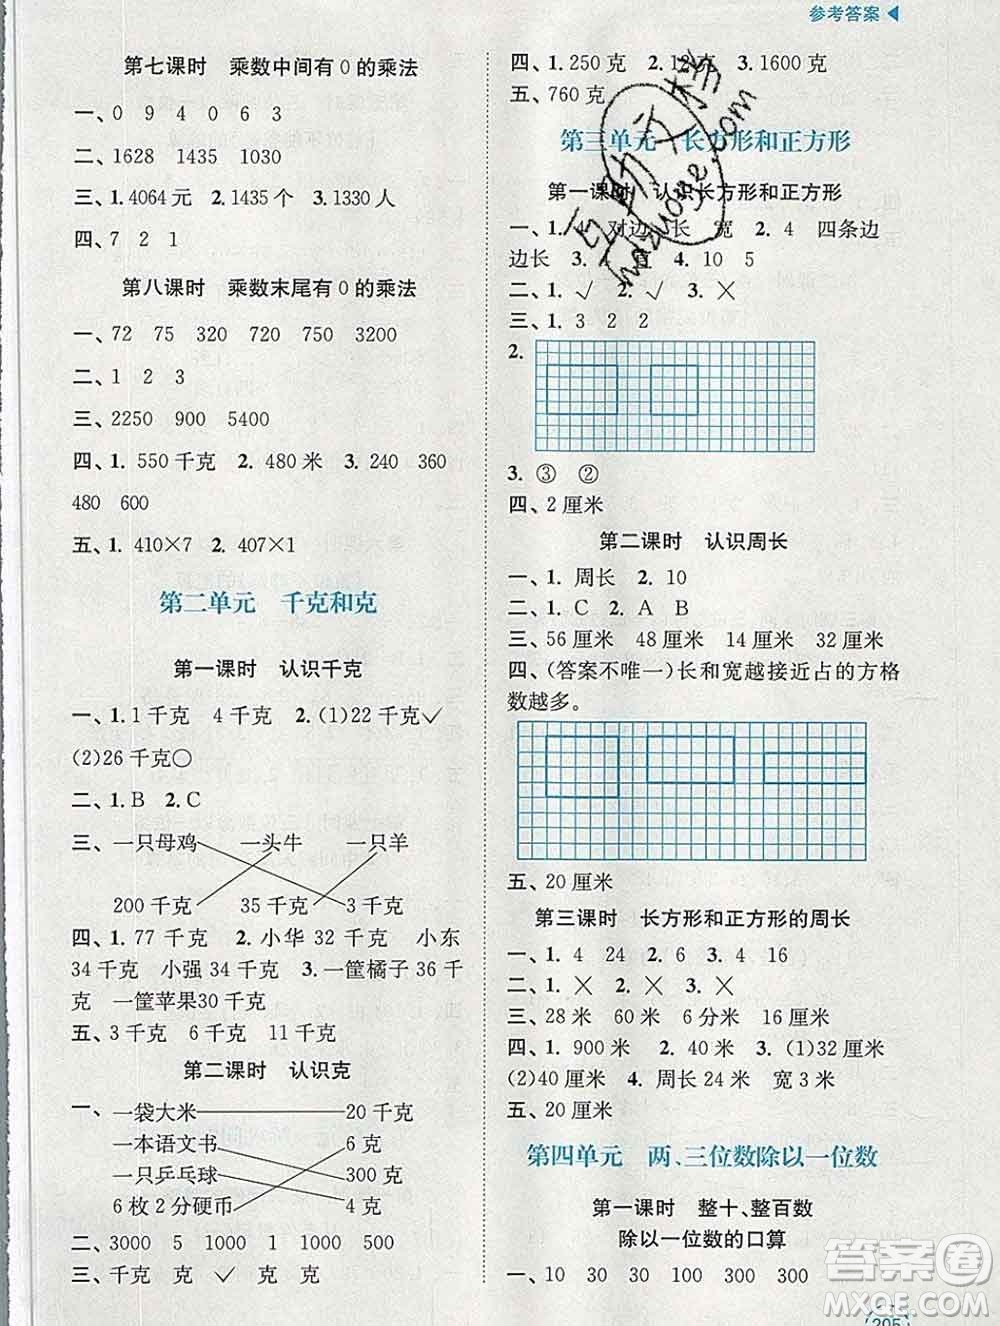 参考答案
第七课时 乘数中间有0的乘法
一、0 9 4 0 6 3
二、1628 1435 1030
三、1.4064元 2.1435个 3.1330人
四、7 2 1
第八课时 乘数末尾有0的乘法
一、72 75 320 720 750 3200
二、1 2 3
三、2250 900 5400
四、1. 550千克 2. 480米 3. 240 360
480 600
五、1. 410×7 2. 407×1
第二单元 千克和克
第一课时 认识千克
一、1.1千克 4千克 2.(1)22千克✓
(2)26千克○
二、1.B 2.C
三、一只母鸡 一头牛 一只羊
200千克 35千克 3千克
四、1. 77千克 2. 小华32千克 小东
34千克 小强34千克 3. 一筐橘子36千
克 一筐苹果30千克
五、3千克 6千克 11千克
第二课时 认识克
一、一袋大米 20千克
一本语文书 6克
一只乒乓球 300克
6枚2分硬币 4克
二、3000 5 1000 1000 500
三、千克 克 ✓ 克 克
四、1.250克 2. 3.1600克
五、760克
第三单元 长方形和正方形
第一课时 认识长方形和正方形
一、1.4 对边 长 宽 2. 4 四条边
边长 3. 4 直 4. 10 5
二、1.✓ 2.✓ 3.×
三、1. 3 2 2
2.
3. ③ ②
四、2厘米
第二课时 认识周长
一、1. 周长 2. 10
二、1.C 2.A B
三、56厘米 48厘米 14厘米 32厘米
四、(答案不唯一)长和宽越接近占的方格
数越多。
五、20厘米
第三课时 长方形和正方形的周长
一、1. 4 24 2. 6 3. 4 16
二、1.× 2.× 3.×
三、28米 60米 6分米 16厘米
四、1. 900米 2. 40米 3. (1)32厘米
(2)40厘米 4. 周长24米 宽3米
五、20厘米
第四单元 两、三位数除以一位数
第一课时 整十、整百数
除以一位数的口算
一、10 30 30 100 100 300
205
答案圈
MXQE.COM